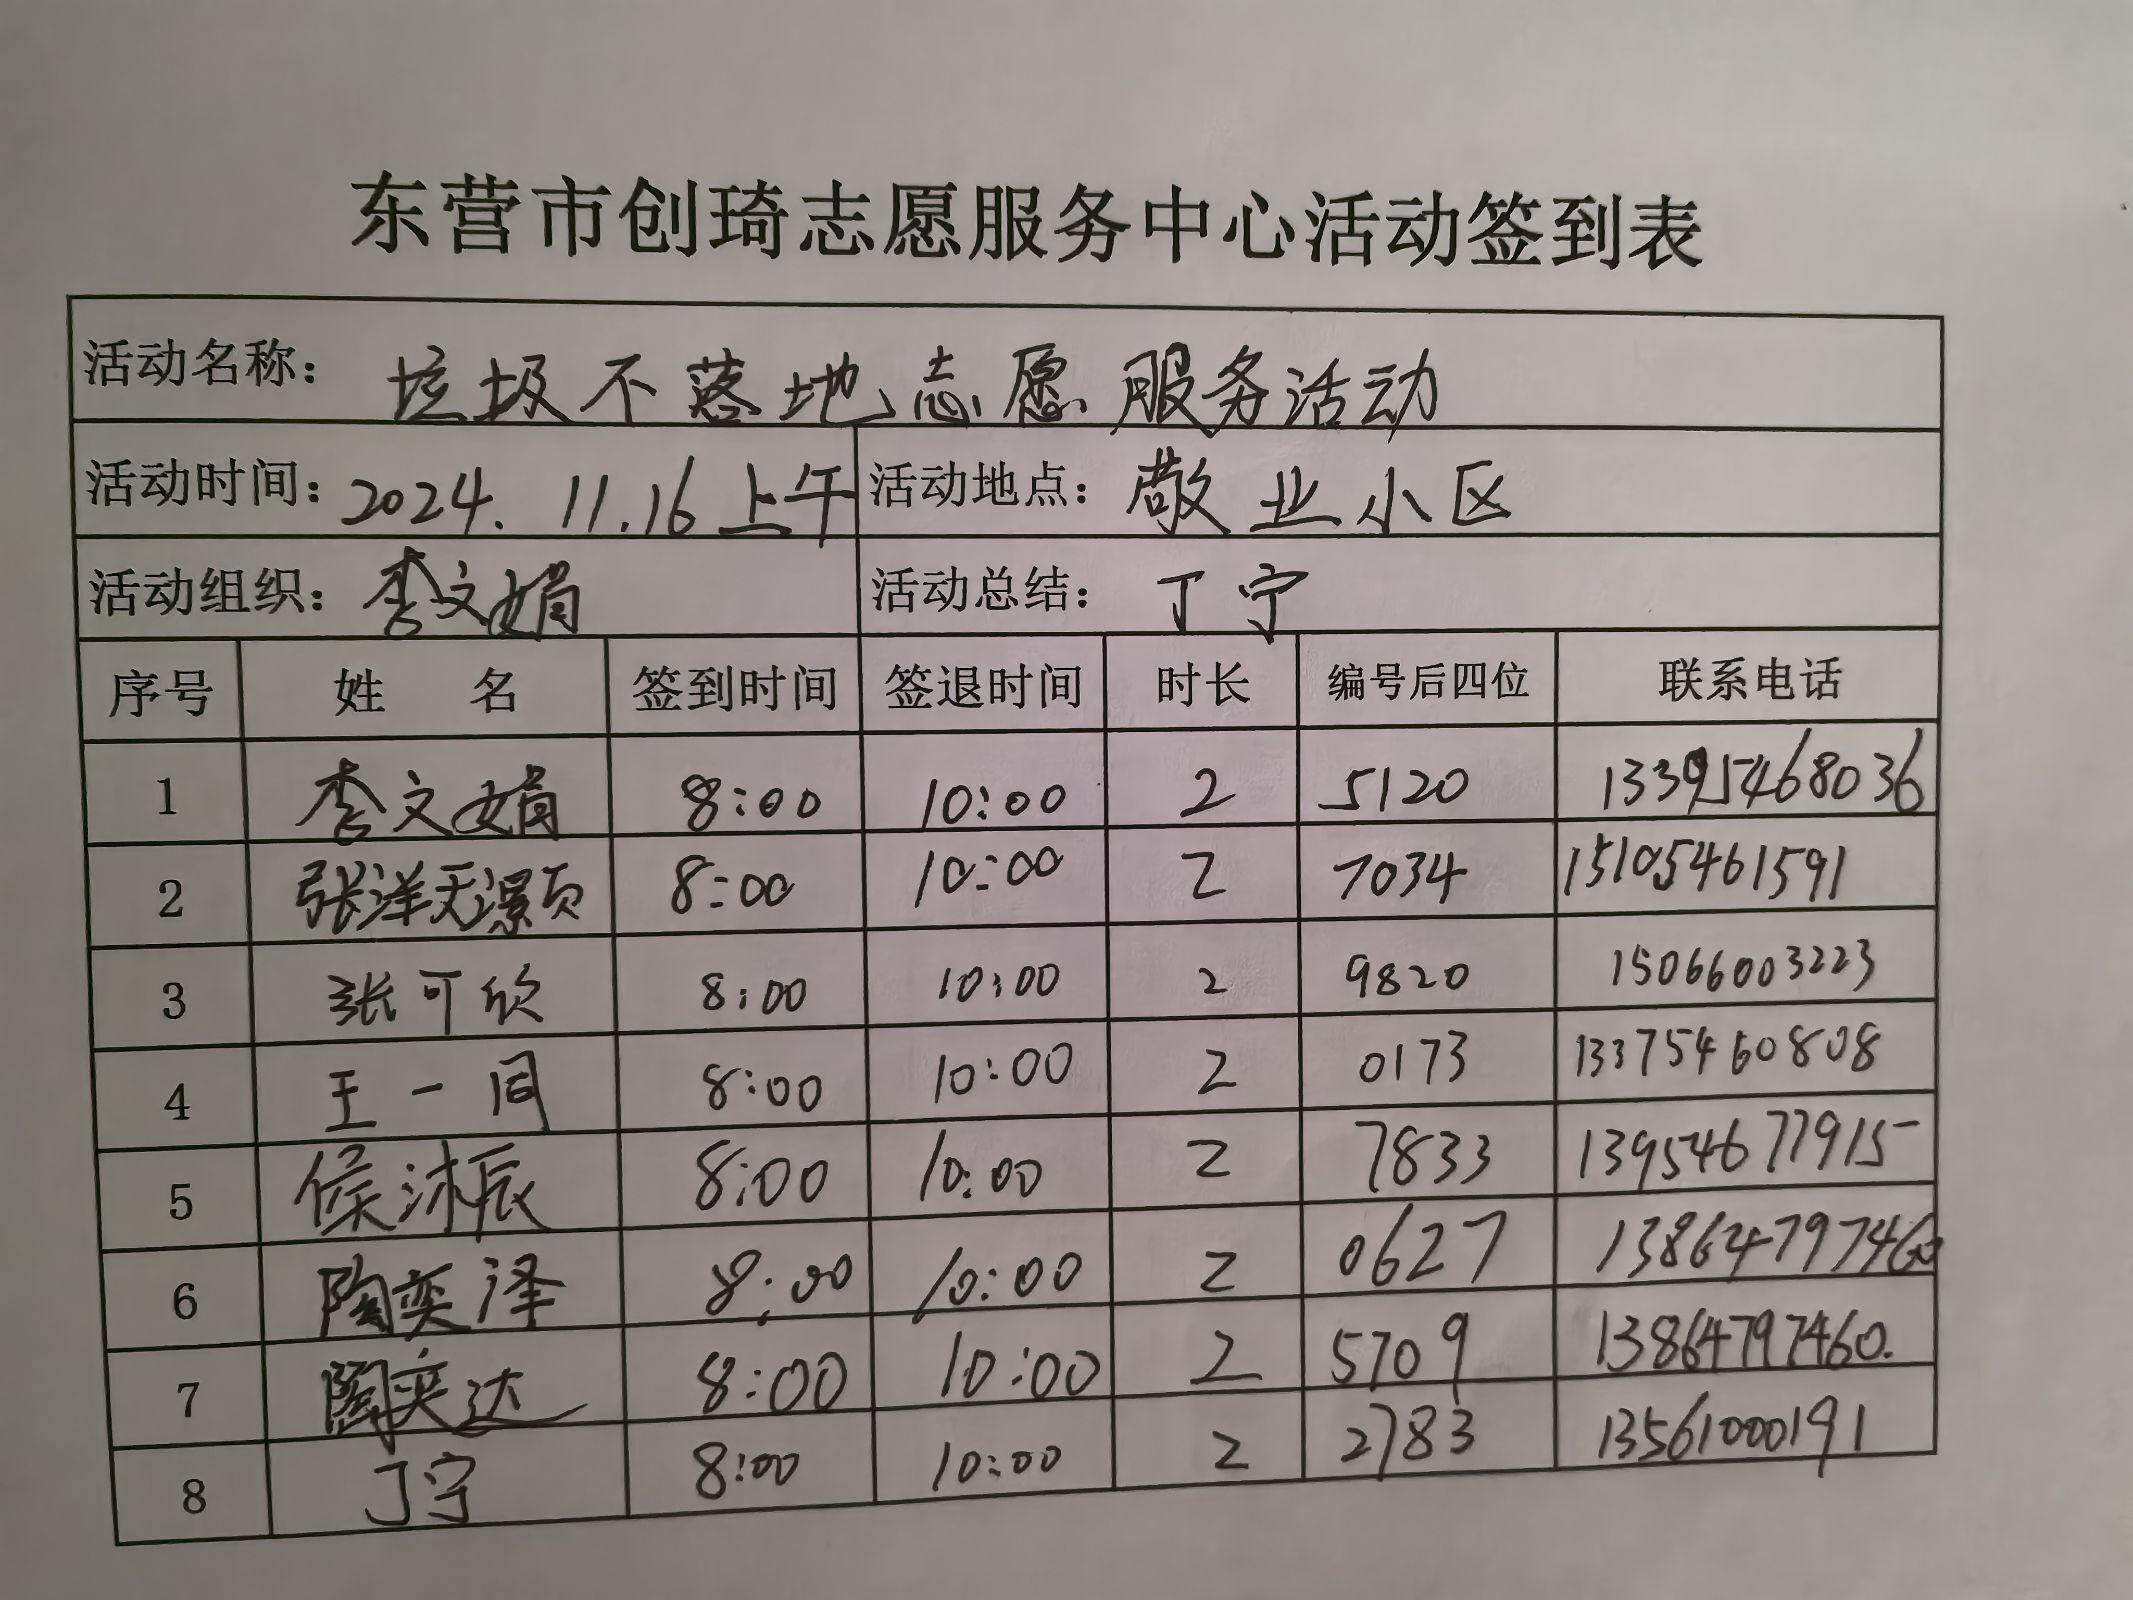 东营市创琦志愿服务中心活动签到表
活动名称： 垃圾不落地志愿服务活动
活动时间：2024. 11.16上午 活动地点： 敬业小区
活动组织：李文娟 活动总结： 丁宁
序号 姓 名 签到时间 签退时间 时长 编号后四位 联系电话
1 李文娟 8:00 10:00 2 5120 13395468036
2 张洋天灏页 8:00 10:00 2 7034 15105461591
3 张可欣 8:00 10:00 2 9820 15066003223
4 王一同 8:00 10:00 2 0173 13375460808
5 侯沐辰 8:00 10:00 2 7833 13954677915
6 陶奕泽 8:00 10:00 2 0627 13864797460
7 陶奕达 8:00 10:00 2 5709 13864797460.
8 丁宁 8:00 10:00 2 2783 13561000191